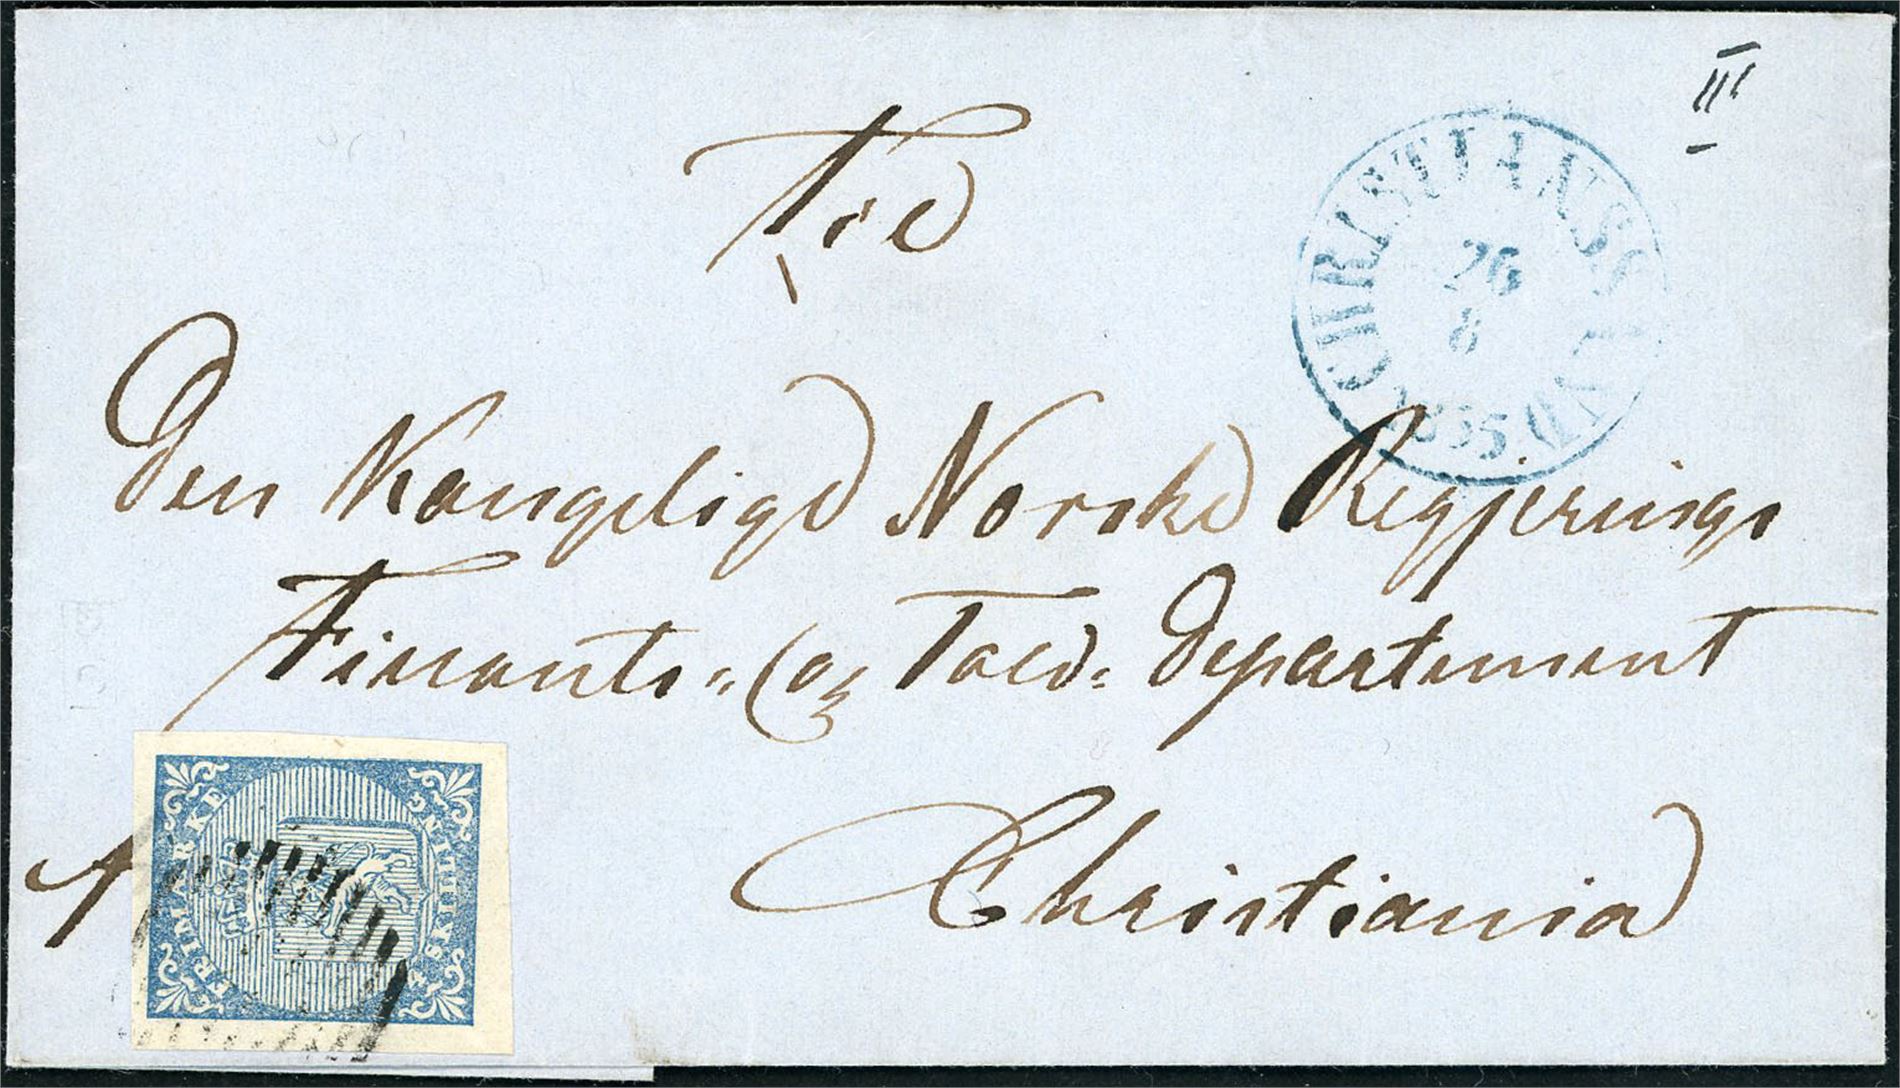 III
Til
CHRISTIANSSUND
26
8
1855
Den Kongelige Norske Regjerings
Finants- og Told- Departement
Christiania
FRIMÆRKE
4 SKILLING